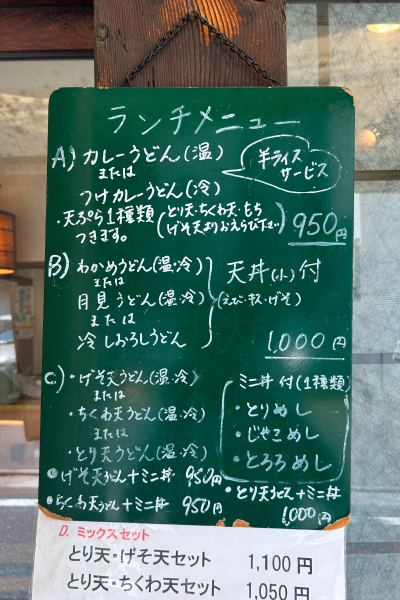 ランチメニュー
A) カレーうどん(温)
または
つけカレーうどん(冷)
半ライス
サービス
・天ぷら1種類
つきます。
(とり天・ちくわ天・もち
げそ天よりおえらび下さい)
950円
B) わかめうどん(温・冷)
または
月見うどん(温・冷)
または
冷しおろしうどん
天丼(小)付
1,000円
C) ・げそ天うどん(温・冷)
または
・ちくわ天うどん(温・冷)
または
・とり天うどん(温・冷)
ミニ丼付(1種類)
・とりめし
・じゃこめし
・とろろめし
・げそ天うどん+ミニ丼 950円
・ちくわ天うどん+ミニ丼 950円
・とり天うどん+ミニ丼
1,000円
D. ミックスセット
とり天・げそ天セット 1,100円
とり天・ちくわ天セット 1,050円